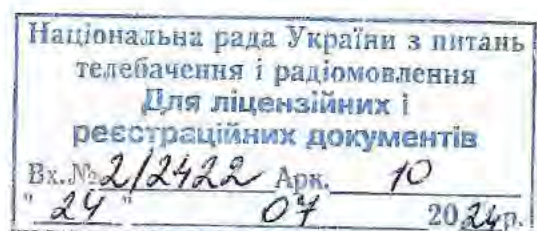 Національна рада України з питань
телебачення і радіомовлення
Для ліцензійних і
реєстраційних документів
Вх.№ 2/2422 Арк. 10
" 24 " 07 2024р.